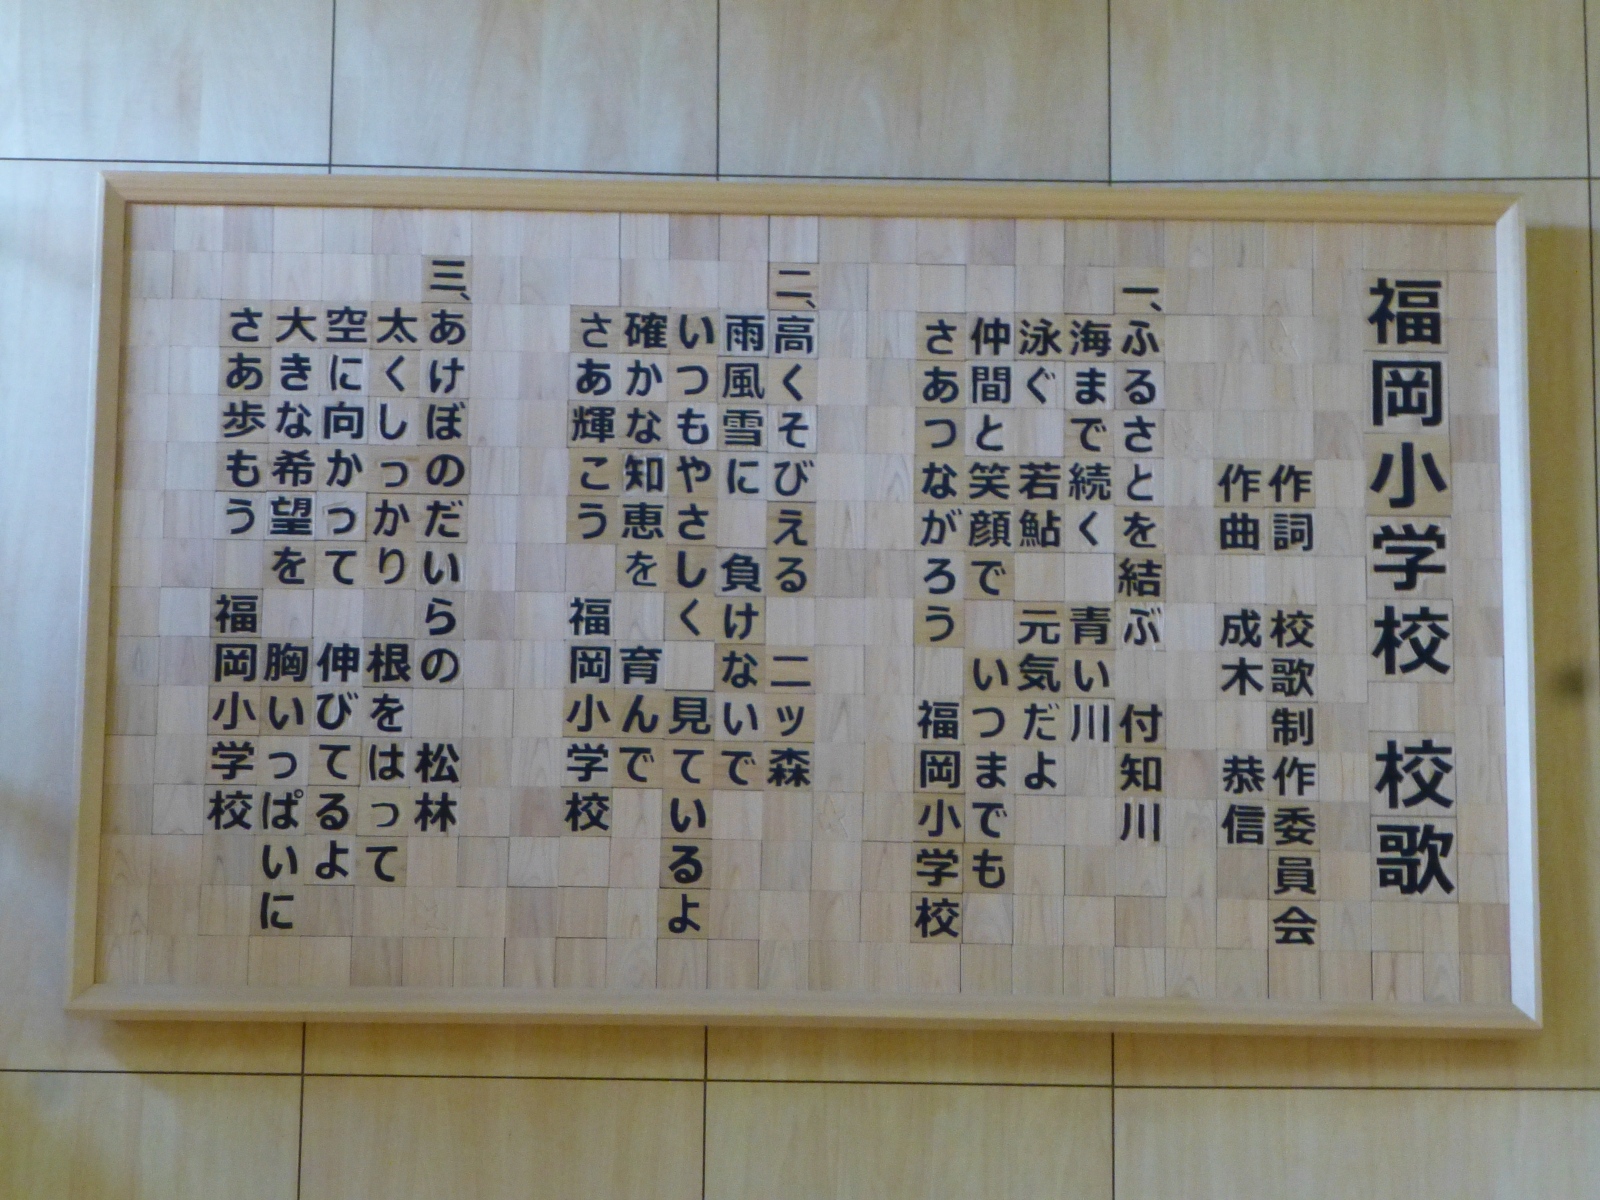 福岡小学校　校歌
作詞　校歌制作委員会
作曲　成木　恭信
一、ふるさとを結ぶ　付知川
海まで続く　青い川
泳ぐ　若鮎　元気だよ
仲間と笑顔で　いつまでも
さあつながろう　福岡小学校
二、高くそびえる　二ッ森
雨風雪に　負けないで
いつもやさしく　見ているよ
確かな知恵を　育んで
さあ輝こう　福岡小学校
三、あけぼのだいらの　松林
太くしっかり　根をはって
空に向かって　伸びてるよ
大きな希望を　胸いっぱいに
さあ歩もう　福岡小学校